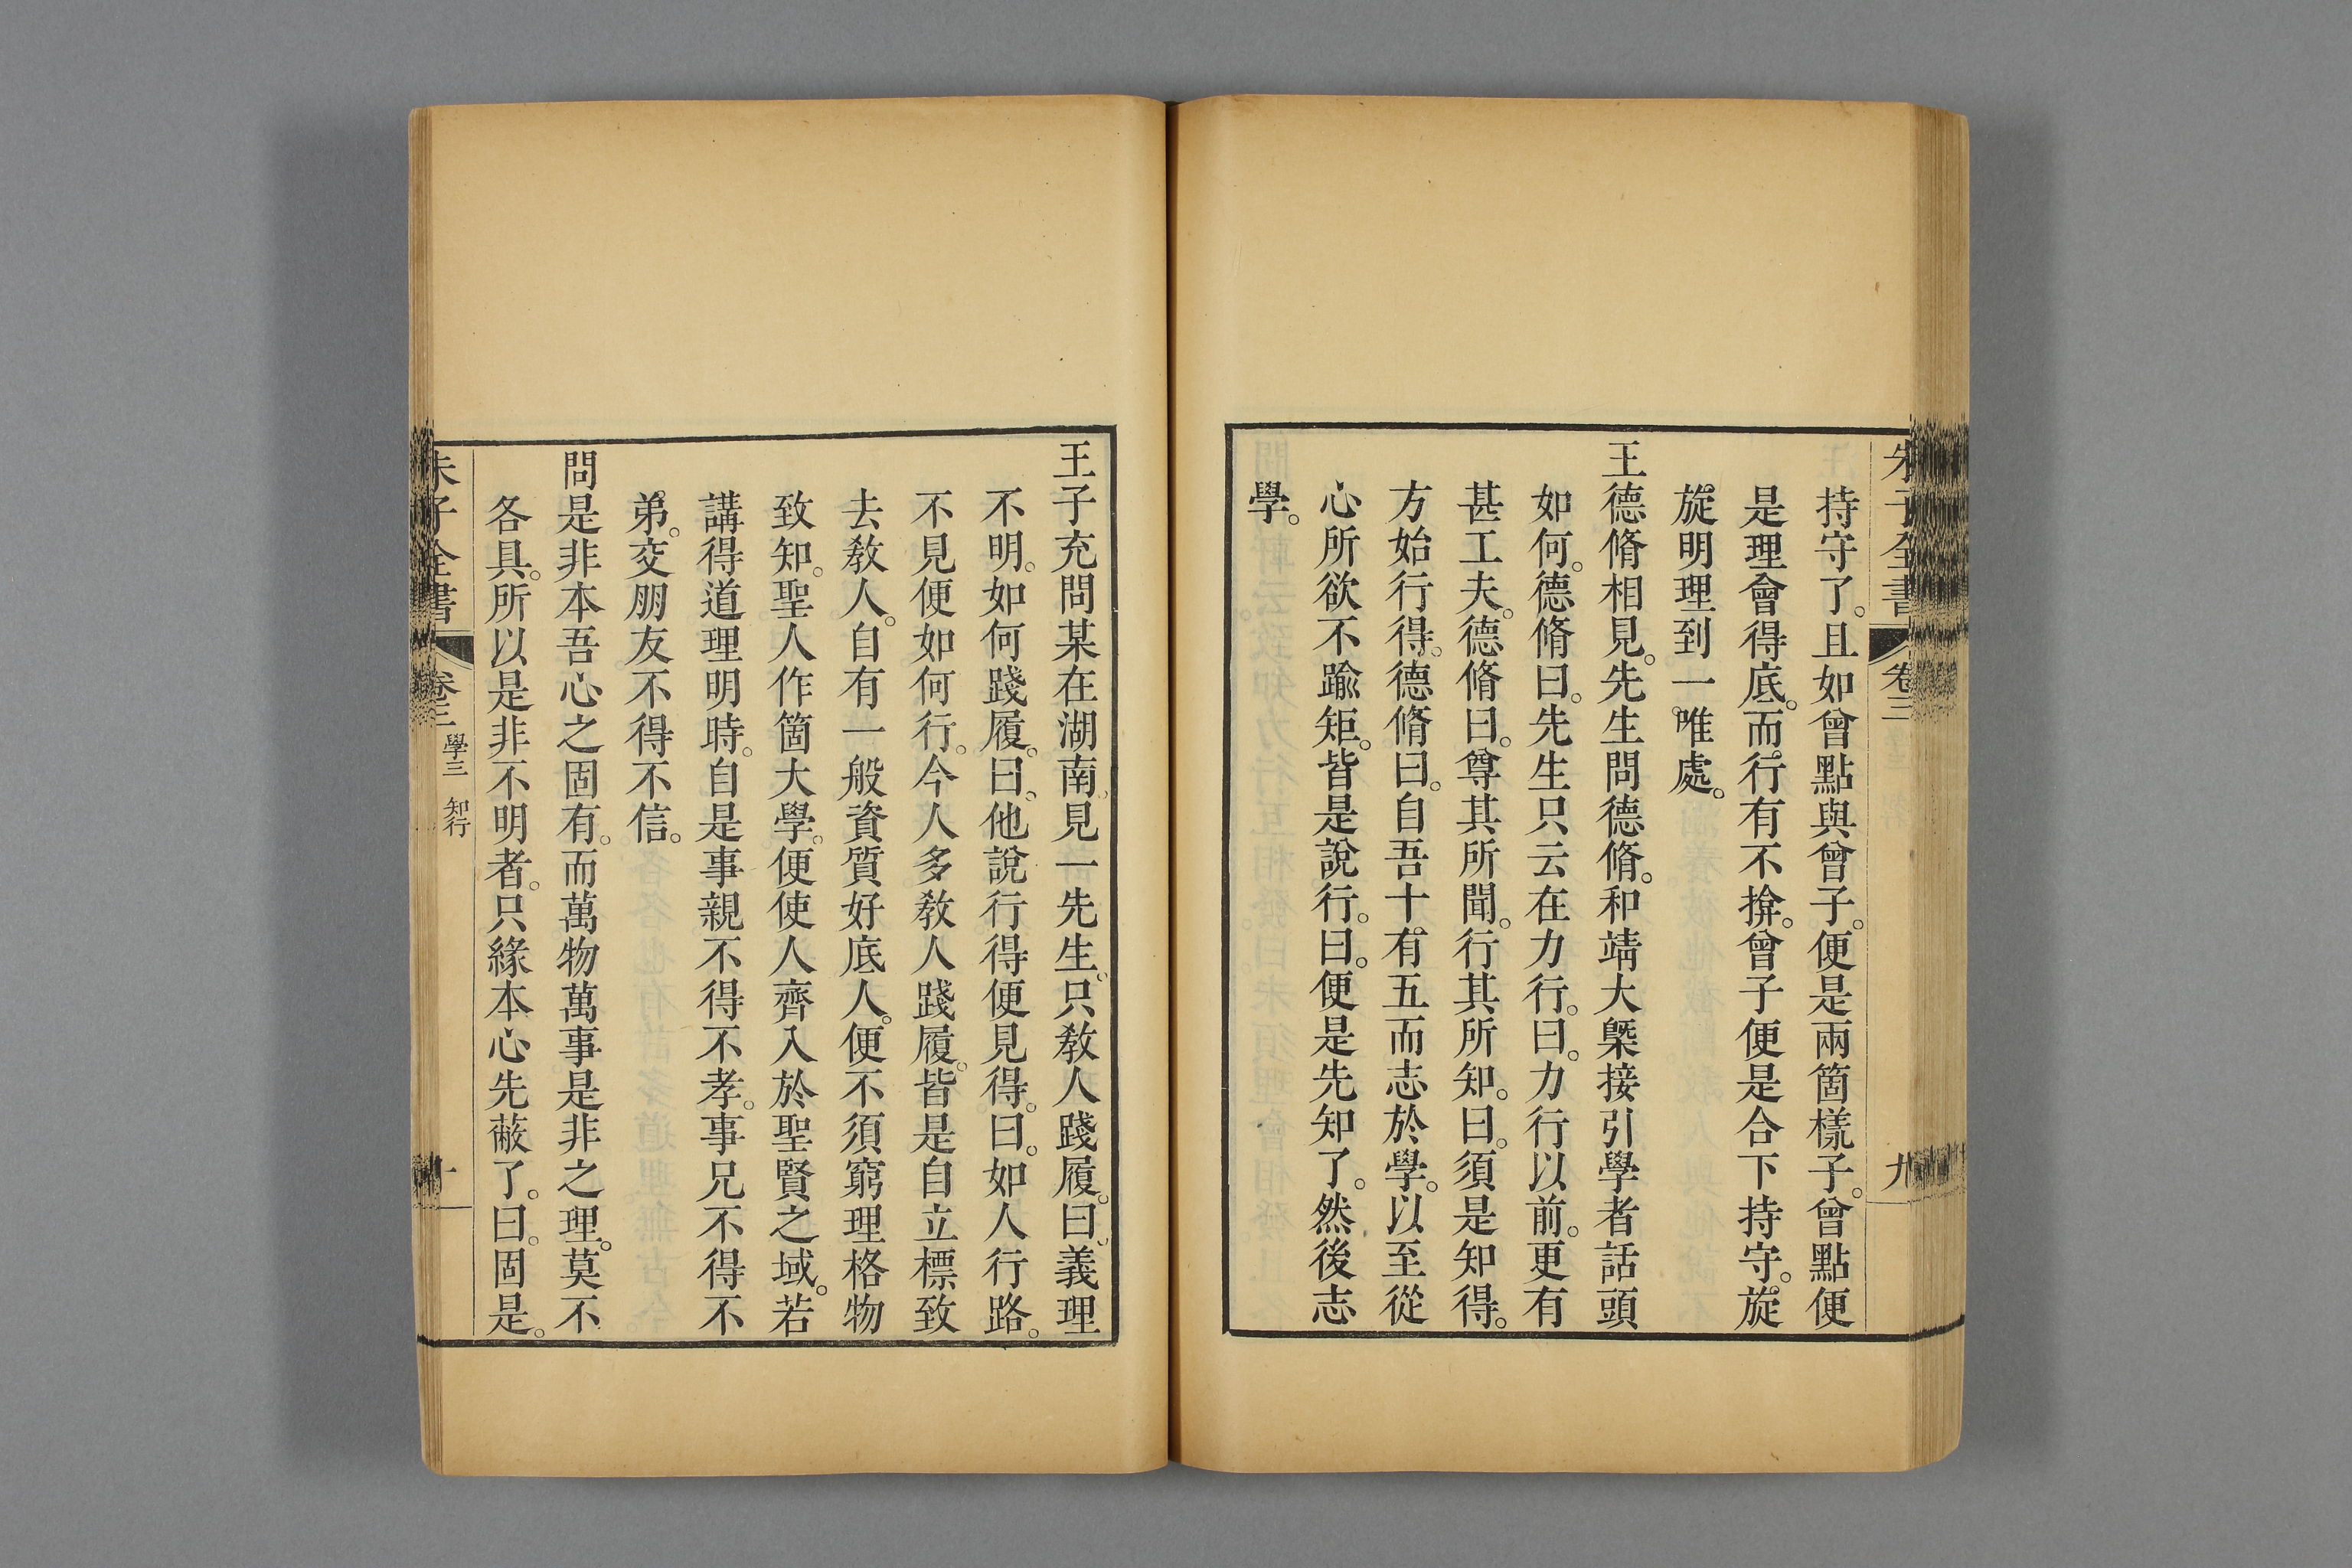 朱子全書 卷三 九
持守了。且如曾點與曾子。便是兩箇樣子。曾點便
是理會得底。而行有不揜。曾子便是合下持守。旋
旋明理到一唯處。
王德脩相見。先生問德脩。和靖大槩接引學者話頭
如何。德脩曰。先生只云在力行。曰。力行以前。更有
甚工夫。德脩曰。尊其所聞。行其所知。曰。須是知得。
方始行得。德脩曰。自吾十有五而志於學。以至從
心所欲不踰矩。皆是說行。曰。便是先知了。然後志
學。
王子充問某在湖南。見一先生。只教人踐履。曰。義理
不明。如何踐履。曰。他說行得便見得。曰。如人行路。
不見便如何行。今人多教人踐履。皆是自立標致
去教人。自有一般資質好底人。便不須窮理格物
致知。聖人作箇大學。便使人齊入於聖賢之域。若
講得道理明時。自是事親不得不孝。事兄不得不
弟。交朋友不得不信。
問是非本吾心之固有。而萬物萬事是非之理。莫不
各具。所以是非不明者。只緣本心先蔽了。曰。固是。
朱子全書 卷三 學三 知行 十